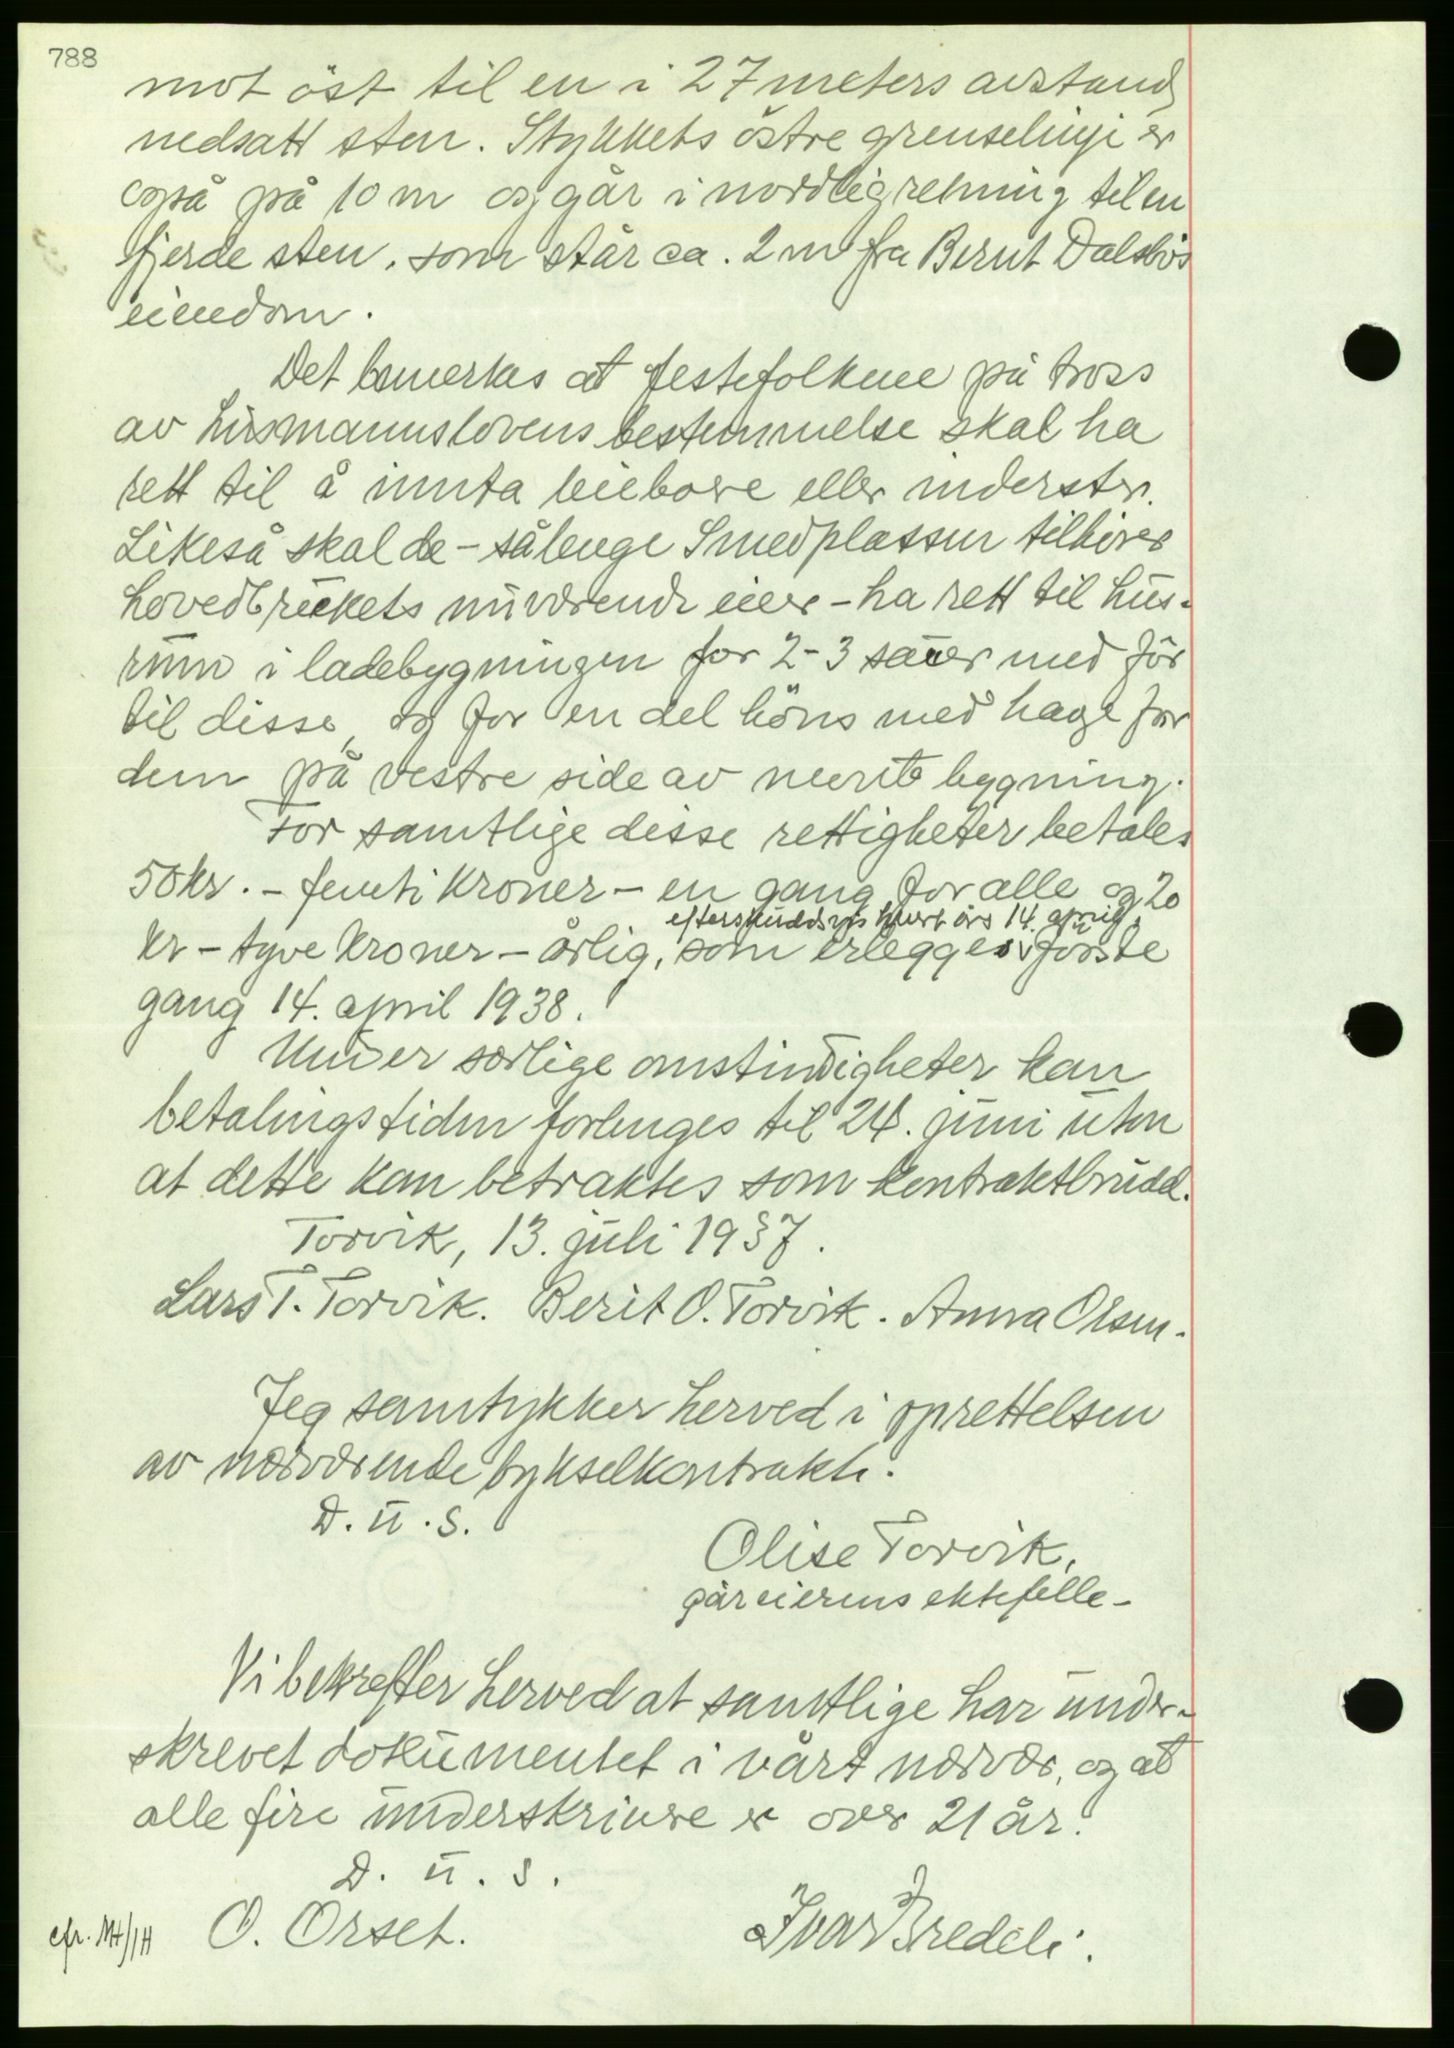 788
mot öst til en i 27 meters avstand
nedsatt sten. Stykkets östre grenselinje er
også på 10 m og går i nordlig retning til en
fjerde sten, som står ca. 2 m fra Bernt Dalsbös
eiendom.
Det bemerkes at festefolkene på tross
av husmannslovens bestemmelse skal ha
rett til å innta leieboere eller inderster.
Likeså skal de - sålenge Smedplassen tilhörer
hovedbrukets nuværende eier - ha rett til hus-
rum i ladebygningen for 2-3 sauer med för
til disse, og for en del höns med hage for
dem på vestre side av nevnte bygning.
For samtlige disse rettigheter betales
50 kr. - femti kroner - en gang for alle og 20
efterskuddsvis hvert års 14. april,
kr - tyve kroner - årlig, som erlegges förste
gang 14. april 1938.
Under særlige omstindigheter kan
betalingstiden forlenges til 24. juni uten
at dette kan betraktes som kontraktbrudd.
Torvik, 13. juli 1937.
Lars T. Torvik. Berit O. Torvik. Anna Olsen.
Jeg samtykker herved i oprettelsen
av nærværende bykselkontrakt.
D. u. s.
Olise Torvik,
gåreierens ektefelle -
Vi bekrefter herved at samtlige har under-
skrevet dokumentet i vårt nærvær, og at
alle fire underskrivere er over 21 år.
D. u. s.
cfr. MH/IH O. Orset. Ivar Bredeli.